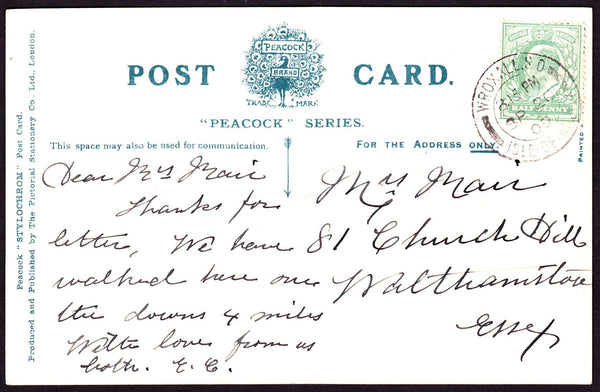 POST CARD.
PEACOCK
BRAND
TRADE MARK
"PEACOCK" SERIES.
This space may also be used for communication.
FOR THE ADDRESS ONLY.
Peacock "STYLOCHROM" Post Card.
Produced and Published by The Pictorial Stationery Co. Ltd., London.
PRINTED
WROXALL S.O
PM
ISLE OF
HALFPENNY
Dear Mrs Mair
Thanks for
letter, We have
walked here over
the downs 4 miles
With love from us
both. E. C.
Mrs Mair
81 Church Hill
Walthamstow
Essex